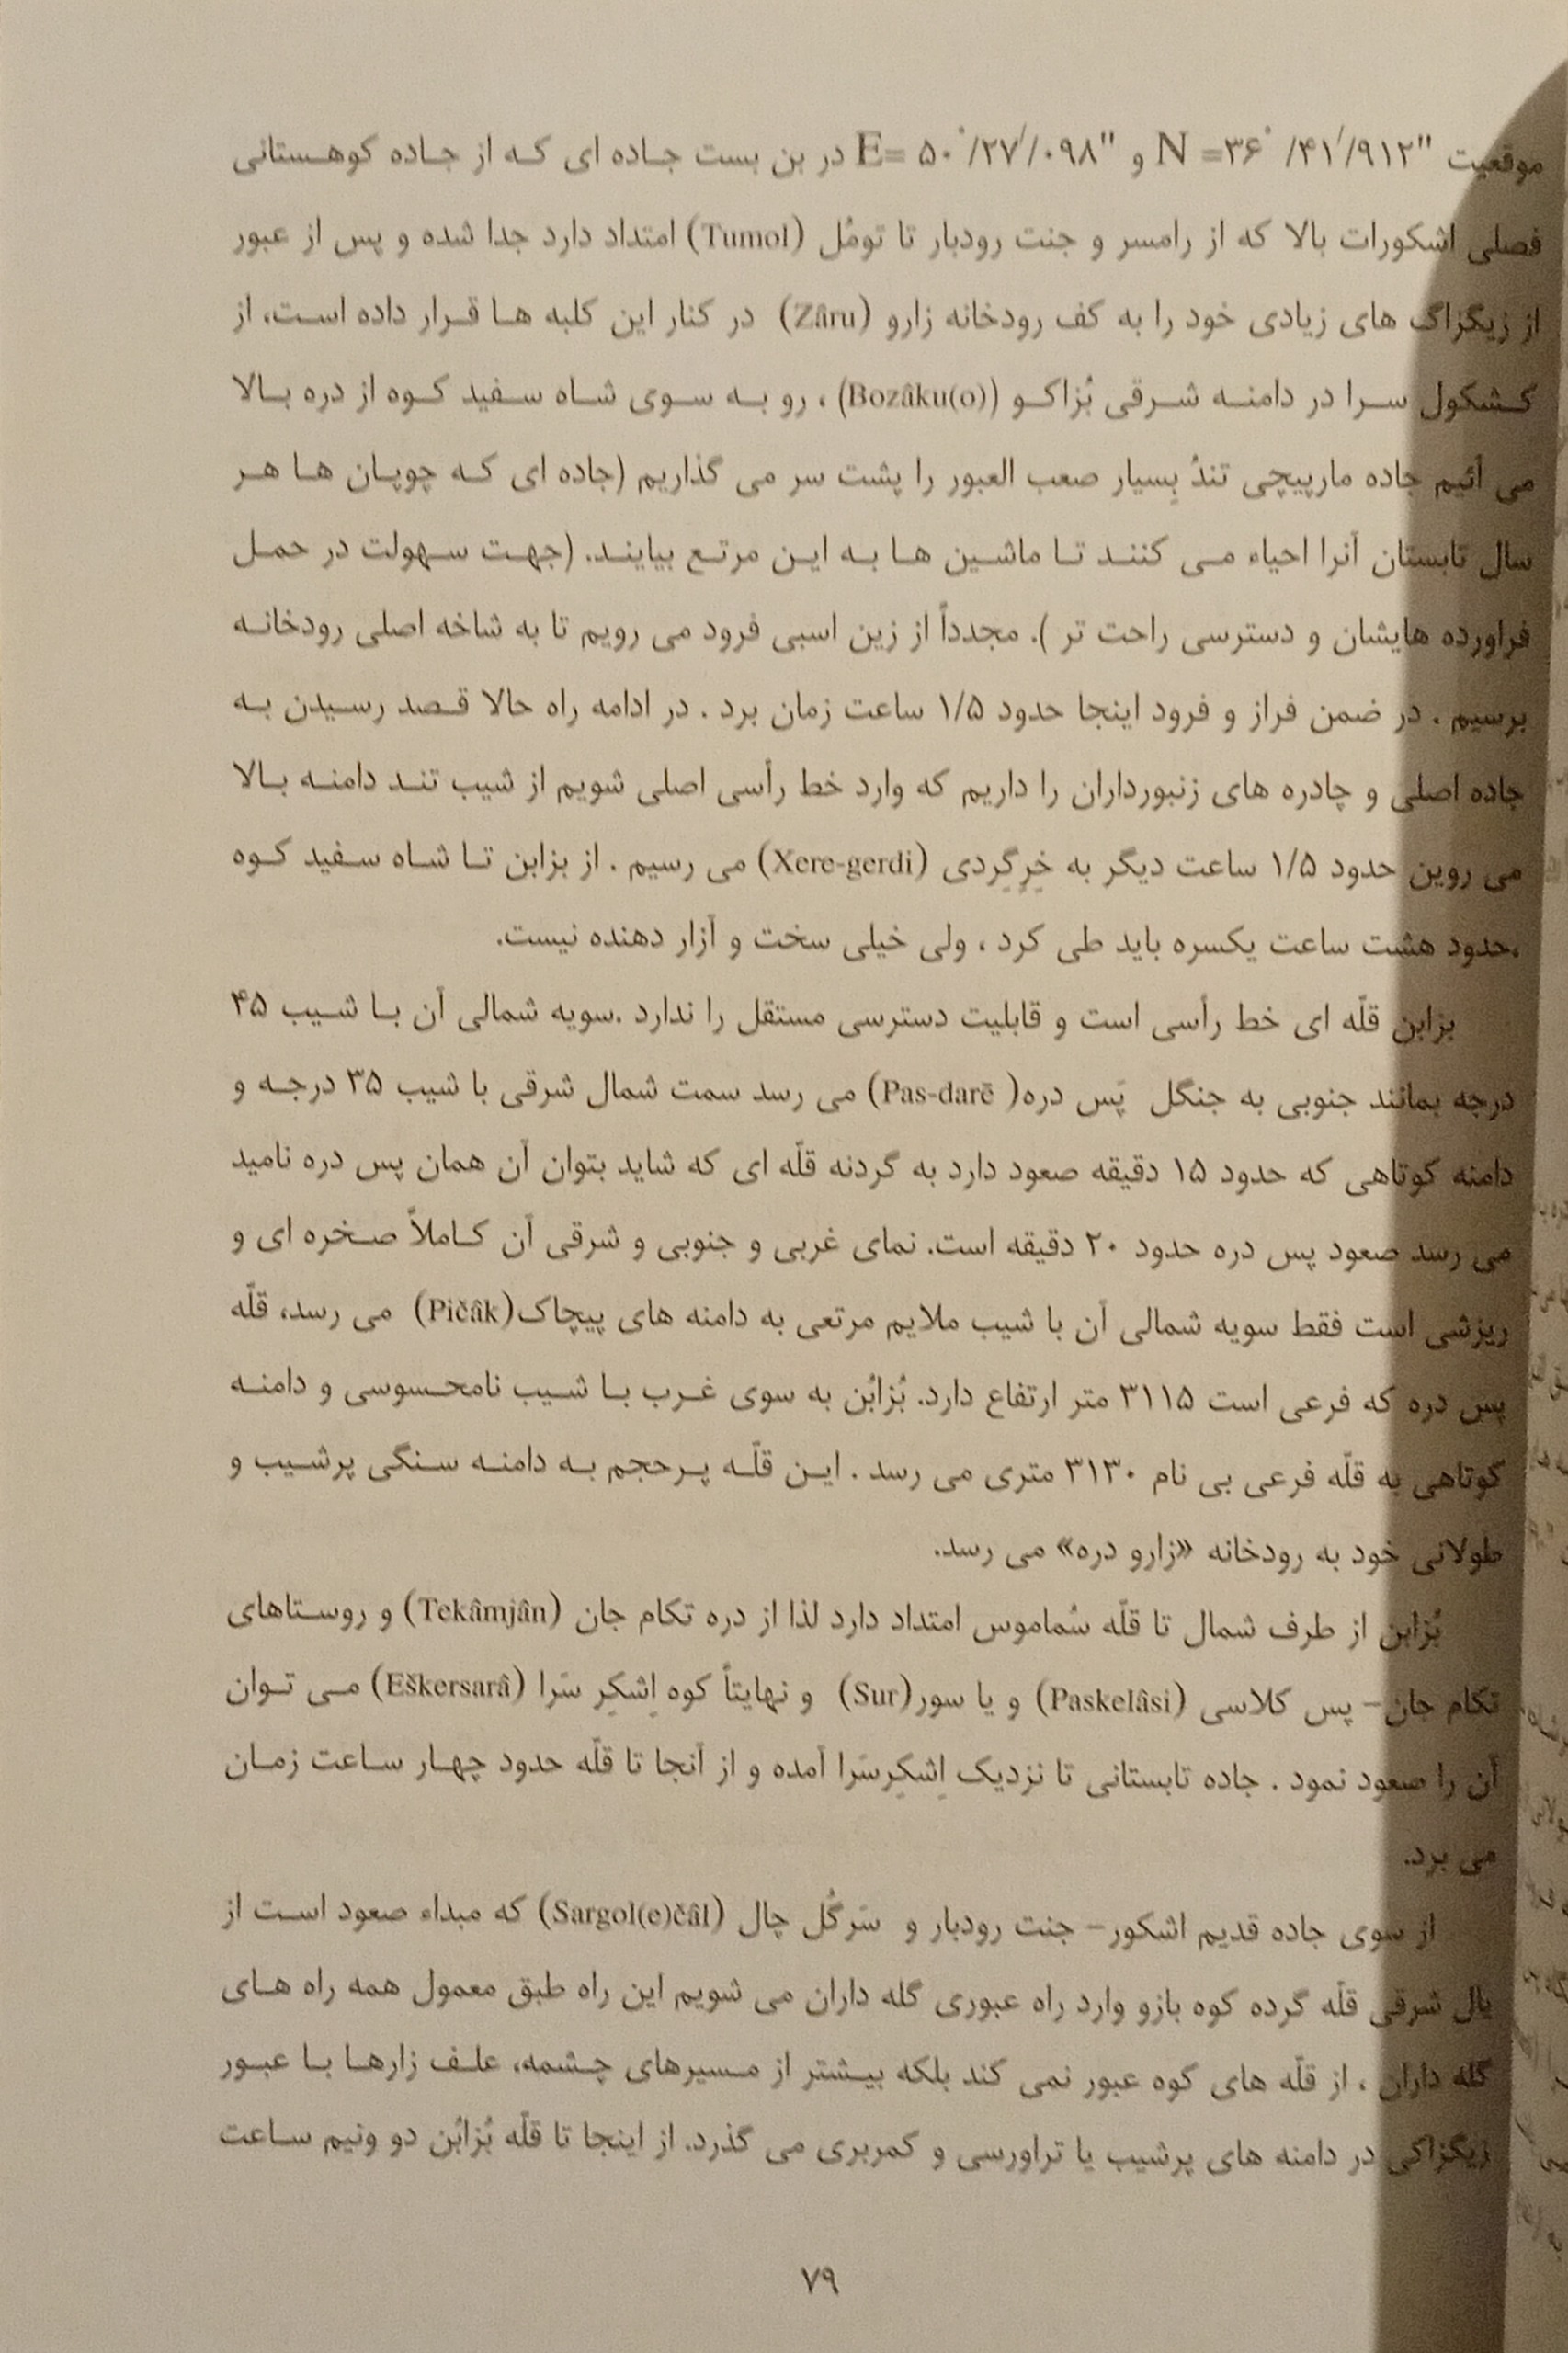 موقعیت "۹۱۲/'۴۱/ °۳۶= N و "۰۹۸/'۲۷/°۵۰ =E در بن بست جاده ای که از جاده کوهستانی
فصلی اشکورات بالا که از رامسر و جنت رودبار تا تومُل (Tumol) امتداد دارد جدا شده و پس از عبور
از زیگزاگ های زیادی خود را به کف رودخانه زارو (Zâru) در کنار این کلبه ها قرار داده است، از
کشکول سرا در دامنه شرقی بُزاکو (Bozâku(o)) ، رو به سوی شاه سفید کوه از دره بالا
می آئیم جاده مارپیچی تندُ بِسیار صعب العبور را پشت سر می گذاریم (جاده ای که چوپان ها هر
سال تابستان آنرا احیاء می کنند تا ماشین ها به این مرتع بیایند. (جهت سهولت در حمل
فراورده هایشان و دسترسی راحت تر ). مجدداً از زین اسبی فرود می رویم تا به شاخه اصلی رودخانه
برسیم . در ضمن فراز و فرود اینجا حدود ۱/۵ ساعت زمان برد . در ادامه راه حالا قصد رسیدن به
جاده اصلی و چادره های زنبورداران را داریم که وارد خط رأسی اصلی شویم از شیب تند دامنه بالا
می روین حدود ۱/۵ ساعت دیگر به خِرِگِردی (Xere-gerdi) می رسیم . از بزابن تا شاه سفید کوه
،حدود هشت ساعت یکسره باید طی کرد ، ولی خیلی سخت و آزار دهنده نیست.
بزابن قلّه ای خط رأسی است و قابلیت دسترسی مستقل را ندارد .سویه شمالی آن با شیب ۴۵
درجه بمانند جنوبی به جنگل پَس دره( Pas-darē) می رسد سمت شمال شرقی با شیب ۳۵ درجه و
دامنه کوتاهی که حدود ۱۵ دقیقه صعود دارد به گردنه قلّه ای که شاید بتوان آن همان پس دره نامید
می رسد صعود پس دره حدود ۲۰ دقیقه است. نمای غربی و جنوبی و شرقی آن کاملاً صخره ای و
ریزشی است فقط سویه شمالی آن با شیب ملایم مرتعی به دامنه های پیچاک(Pičâk) می رسد، قلّه
پس دره که فرعی است ۳۱۱۵ متر ارتفاع دارد. بُزابُن به سوی غرب با شیب نامحسوسی و دامنه
کوتاهی به قلّه فرعی بی نام ۳۱۳۰ متری می رسد . این قلّه پرحجم به دامنه سنگی پرشیب و
طولانی خود به رودخانه «زارو دره» می رسد.
بُزابن از طرف شمال تا قلّه سُماموس امتداد دارد لذا از دره تکام جان (Tekâmjân) و روستاهای
تکام جان– پس کلاسی (Paskelâsi) و یا سور(Sur) و نهایتاً کوه اِشکِر سَرا (Eškersarâ) می توان
آن را صعود نمود . جاده تابستانی تا نزدیک اِشکِرسَرا آمده و از آنجا تا قلّه حدود چهار ساعت زمان
می برد.
از سوی جاده قدیم اشکور– جنت رودبار و سَرگُل چال (Sargol(e)čâl) که مبداء صعود است از
یال شرقی قلّه گرده کوه بازو وارد راه عبوری گله داران می شویم این راه طبق معمول همه راه های
گله داران ، از قلّه های کوه عبور نمی کند بلکه بیشتر از مسیرهای چشمه، علف زارها با عبور
زیگزاکی در دامنه های پرشیب یا تراورسی و کمربری می گذرد. از اینجا تا قلّه بُزابُن دو ونیم ساعت
۷۹